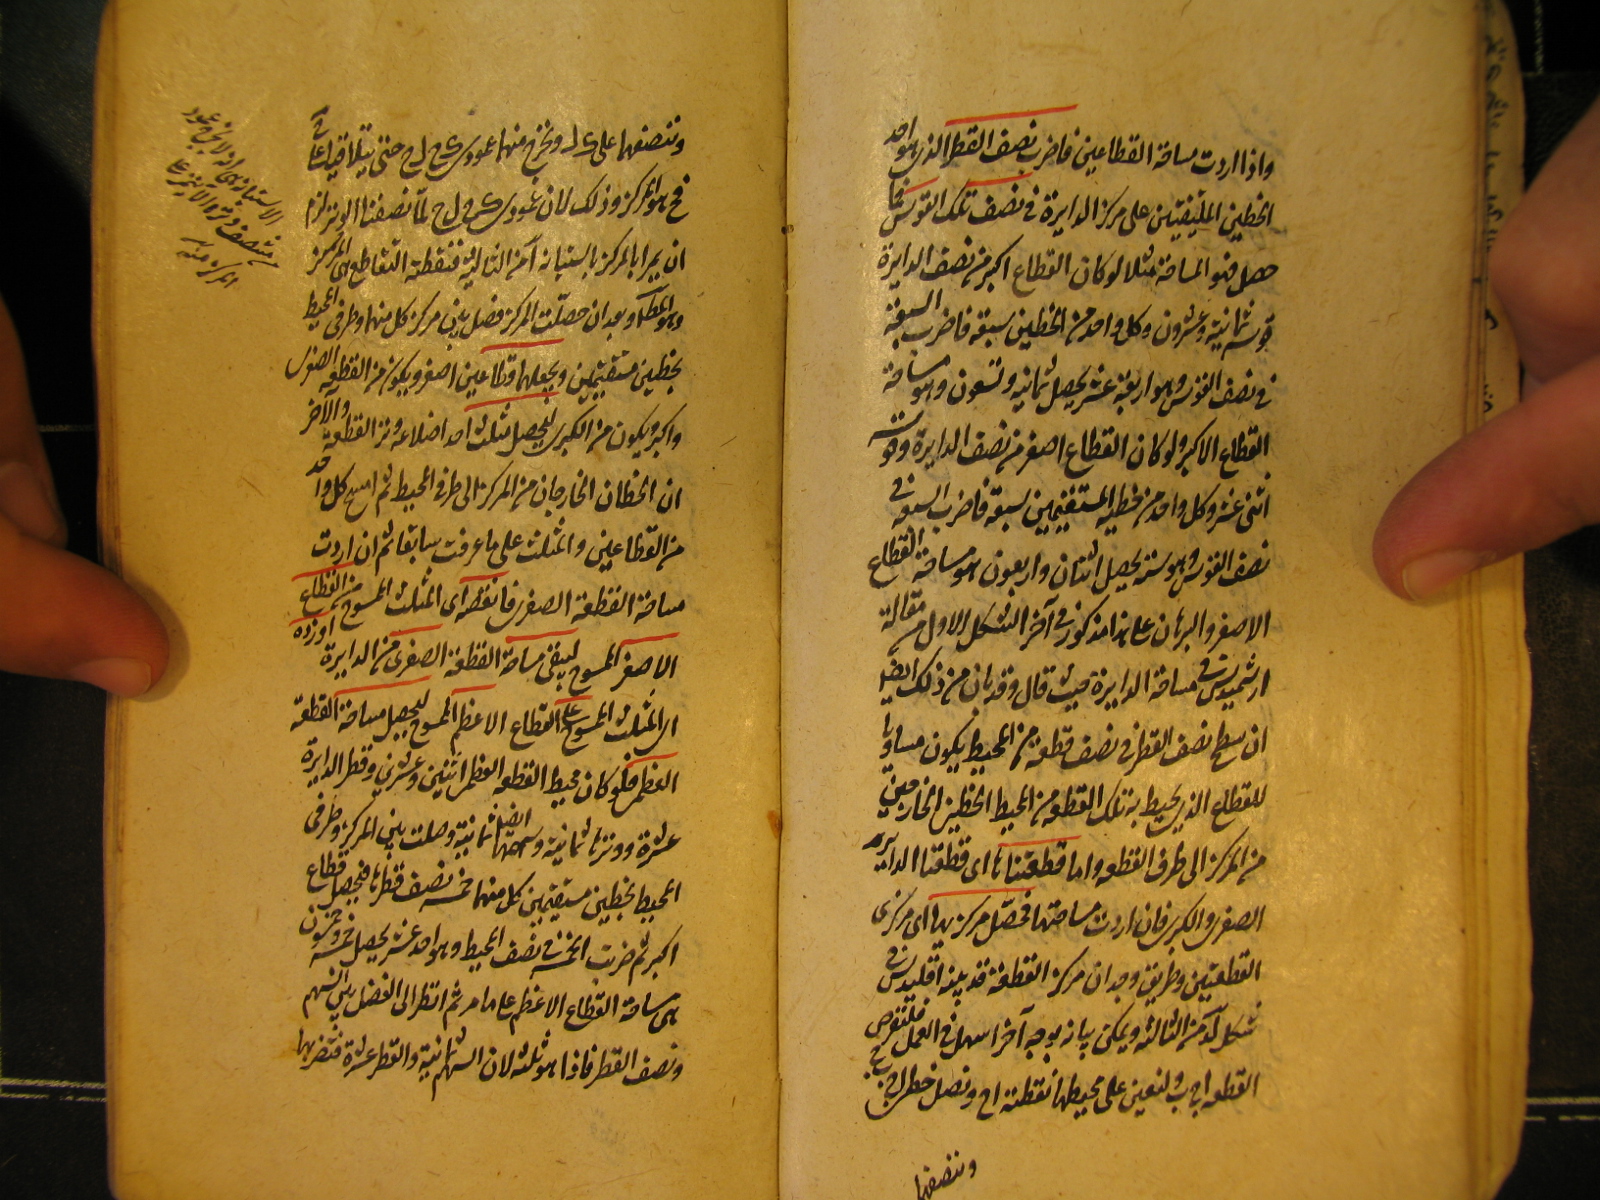 واذا اردت مساحة القطاعين فاضرب نصف القطر الذى هو احد
الخطين الملتقيين على مركز الدايرة فى نصف تلك القوس فما
حصل فهو المساحة مثلا لو كان القطاع اكبر من نصف الدايرة
قوسه ثمانية وعشرون وكل واحد من الخطين سبعة فاضرب السبعة
فى نصف القوس وهو اربعة عشر يحصل ثمانية وتسعون وهو مساحة
القطاع الاكبر ولو كان القطاع اصغر من نصف الدايرة وقوسه
اثنى عشر وكل واحد من خطيه المستقيمين سبعة فاضرب السبعة فى
نصف القوس وهو ستة يحصل اثنان واربعون هو مساحة القطاع
الاصغر والبرهان على هذا مذكور فى آخر الشكل الاول من مقالة
ارشميدس فى مساحة الدايرة حيث قال وقد بان من ذلك ايضا
ان سطح نصف القطر فى نصف قطعة من المحيط يكون مساويا
للقطاع الذى يحيط به تلك القطعة من المحيط والخطين الخارجين
من المركز الى طرفى القطعة واما قطعتاها اى قطعتا الدايرة
الصغرى والكبرى فان اردت مساحتها فحصل مركزيهما اى مركزى
القطعتين وطريق وجدان مركز القطعة قد بينه اقليدس فى
شكل كه من الثالثة ويمكن بيانه بوجه آخر اسهل فى العمل فلنفرض
القطعة اج ب ولنعين على محيطها نقطة ج ونصل خطى اج ب ج
وننصفهما
وننصفهما على ك ل ونخرج منهما عمودى ك ح ل ح حتى يتلاقيا على ح
فح هو المركز وذلك لان عمودى ك ح و ل ح لما نصفنا الوتر لزم
ان يمرا بالمركز باستبانة آ من الثالثة فنقطة التقاطع هى المركز
وهو المط وبعد ان حصلت المركز فصل بين مركز كل منهما وطرفى المحيط
بخطين مستقيمين ويجعلهما قطاعين اصغر ويكون من القطعة الصغرى
واكبر ويكون من الكبرى ليحصل مثلث احد اضلاعه وتر القطعة والآخر
ان الخطان الخارجان من المركز الى طرفى المحيط ثم امسح كل واحد
من القطاعين والمثلث على ما عرفت سابقا ثم ان اردت
مساحة القطعة الصغرى فانقصه اى المثلث الممسوح من القطاع
الاصغر الممسوح ليبقى مساحة القطعة الصغرى من الدايرة او زده
اى المثلث الممسوح على القطاع الاعظم الممسوح ليحصل مساحة القطعة
العظمى فلو كان محيط القطعة العظمى اثنين وعشرين وقطر الدايرة
عشرة ووترها ثمانية وسهمها ايضا ثمانية وصلت بين المركز وطرفى
المحيط بخطين مستقيمين كل منهما خمسة نصف قطرها فيحصل قطاع
اكبر ثم ضربت الخمسة فى نصف المحيط وهو احد عشر يحصل خمسة وخمسون
هى مساحة القطاع الاعظم على ما مر ثم انظر الى الفضل بين السهم
ونصف القطر فاذا هو ثلثة لان السهم ثمانية والقطر عشرة فتضربها